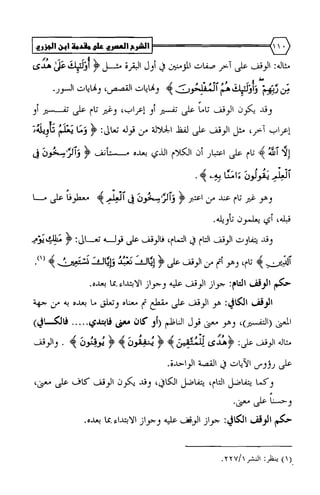 ١١٠ الشرح العصري على مقدمة ابن الجزري
مثاله: الوقف على آخر صفات المؤمنين في أول البقرة مثـــل ﴿ أُوْلَٰٓئِكَ عَلَىٰ هُدٗى
مِّن رَّبِّهِمۡۖ وَأُوْلَٰٓئِكَ هُمُ ٱلۡمُفۡلِحُونَ ﴾ ونهايات القصص، ونهايات السور.
وقد يكون الوقف تاماً على تفسير أو إعراب، وغير تام على تفـــسير أو
إعراب آخر، مثل الوقف على لفظ الجلالة من قوله تعالى: ﴿ وَمَا يَعۡلَمُ تَأۡوِيلَهُۥٓ
إِلَّا ٱللَّهُ ﴾ تام على اعتبار أن الكلام الذي بعده مـــستأنف ﴿ وَٱلرَّٰسِخُونَ فِي
ٱلۡعِلۡمِ يَقُولُونَ ءَامَنَّا بِهِۦ ﴾ .
وهو غير تام عند من اعتبر ﴿ وَٱلرَّٰسِخُونَ فِي ٱلۡعِلۡمِ ﴾ معطوفاً على مـــا
قبله، أي يعلمون تأويله.
وقد يتفاوت الوقف التام في التمام، فالوقف على قولـــه تعـــالى: ﴿ مَٰلِكِ يَوۡمِ
ٱلدِّينِ ﴾ تام، وهو أتم من الوقف على ﴿ إِيَّاكَ نَعۡبُدُ وَإِيَّاكَ نَسۡتَعِينُ ﴾ (١).
حكم الوقف التام: جواز الوقف عليه وجواز الابتداء بما بعده.
الوقف الكافي: هو الوقف على مقطع تم معناه وتعلق ما بعده به من جهة
المعنى (التفسير)، وهو معنى قول الناظم (أو كان معنى فابتدي..... فالكـــافي)
مثاله الوقف على: ﴿هُدٗى لِّلۡمُتَّقِينَ ﴾ ﴿ يُنفِقُونَ ﴾ ﴿ يُوقِنُونَ ﴾ . والوقف
على رؤوس الآيات في القصة الواحدة.
وكما يتفاضل التام، يتفاضل الكافي، وقد يكون الوقف كاف على معنى،
وحسناً على معنى.
حكم الوقف الكافي: جواز الوقف عليه وجواز الابتداء بما بعده.
(١) ينظر: النشر ٢٢٧/١.